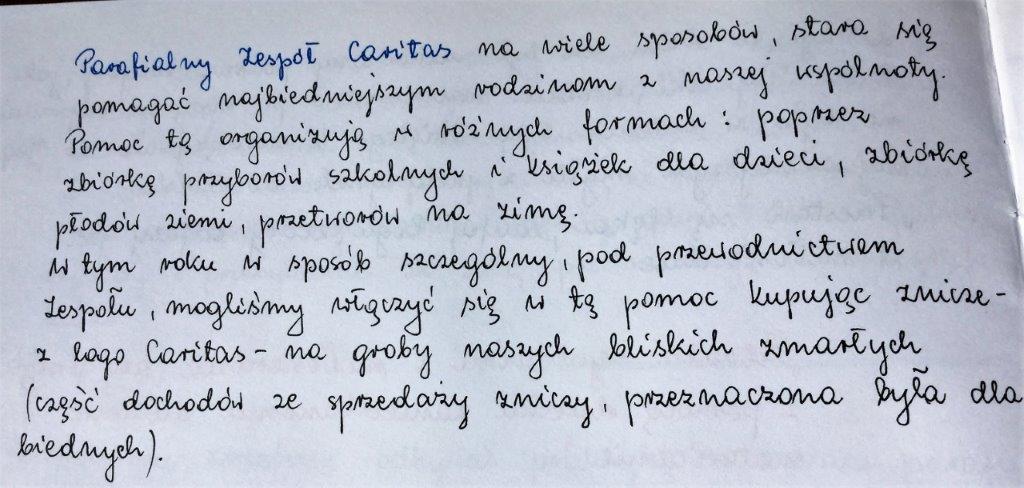 Parafialny Zespół Caritas na wiele sposobów, stara się
pomagać najbiedniejszym rodzinom z naszej wspólnoty.
Pomoc tą organizują w różnych formach: poprzez
zbiórkę przyborów szkolnych i książek dla dzieci, zbiórkę
płodów ziemi, przetworów na zimę.
W tym roku w sposób szczególny, pod przewodnictwem
Zespołu, mogliśmy włączyć się w tą pomoc kupując znicze -
z logo Caritas - na groby naszych bliskich zmarłych
(część dochodów ze sprzedaży zniczy przeznaczona była dla
biednych).